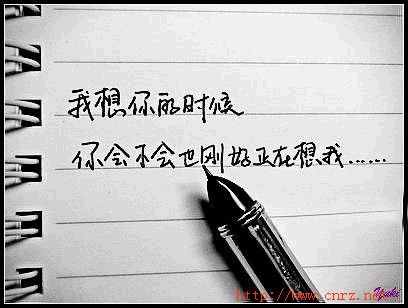 我想你的时候
你会不会也刚好正在想我……
http://www.cnrz.ne
Yuki